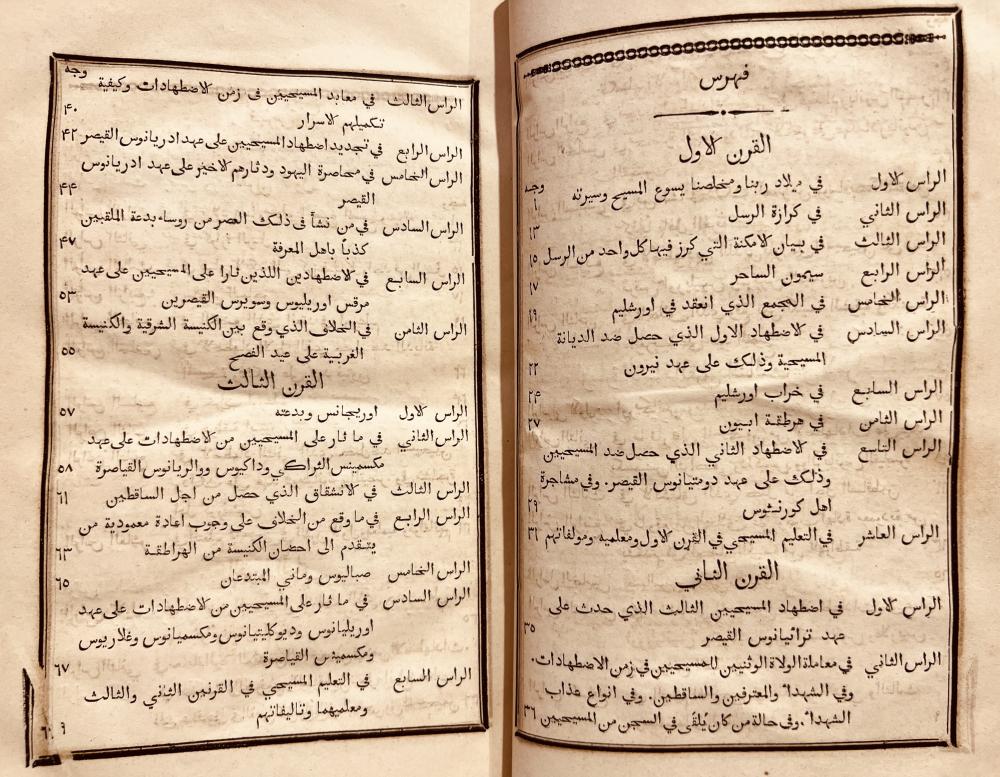 فهرس
القرن الاول
وجه
الراس الاول في ميلاد ربنا ومخلصنا يسوع المسيح وسيرته ١
الراس الثاني في كرازة الرسل ١٣
الراس الثالث في بيان الامكنة التي كرز فيها كل واحد من الرسل ١٥
الراس الرابع سيمون الساحر ١٧
الراس الخامس في المجمع الذي انعقد في اورشليم ١٩
الراس السادس في الاضطهاد الاول الذي حصل ضد الديانة
المسيحية وذلك على عهد نيرون ٢٢
الراس السابع في خراب اورشليم ٢٤
الراس الثامن في هرطقة ابيون ٢٧
الراس التاسع في الاضطهاد الثاني الذي حصل ضد المسيحيين
وذلك على عهد دومتيانوس القيصر. وفي مشاجرة
اهل كورنثوس ٢٩
الراس العاشر في التعليم المسيحي في القرن الاول ومعلميه ومولفاتهم ٣١
القرن الثاني
الراس الاول في اضطهاد المسيحيين الثالث الذي حدث على
عهد ترائيانوس القيصر ٣٥
الراس الثاني في معاملة الولاة الوثنيين للمسيحيين في زمن الاضطهادات.
وفي الشهداء والمعترفين والساقطين. وفي انواع عذاب
الشهداء. وفي حالة من كان يُلقَى في السجن من المسيحيين ٣٦
وجه
الراس الثالث في معابد المسيحيين في زمن الاضطهادات وكيفية
تكميلهم الاسرار ٤٠
الراس الرابع في تجديد اضطهاد المسيحيين على عهد ادريانوس القيصر ٤٢
الراس الخامس في محاصرة اليهود ودثارهم الاخير على عهد ادريانوس
القيصر ٤٤
الراس السادس في من نشأ في ذلك العصر من روساء بدعة الملقبين
كذباً باهل المعرفة ٤٧
الراس السابع في الاضطهادين اللذين ثارا على المسيحيين على عهد
مرقس اوريليوس وسويرس القيصرين ٥٣
الراس الثامن في الخلاف الذي وقع بين الكنيسة الشرقية والكنيسة
الغربية على عيد الفصح ٥٥
القرن الثالث
الراس الاول اوريجانس وبدعته ٥٧
الراس الثاني في ما ثار على المسيحيين من الاضطهادات على عهد
مكسمينس الثراكي وداكيوس ووالريانوس القياصرة ٥٨
الراس الثالث في الانشقاق الذي حصل من اجل الساقطين ٦١
الراس الرابع في ما وقع من الخلاف على وجوب اعادة معمودية من
يتقدم الى احضان الكنيسة من الهراطقة ٦٣
الراس الخامس صباليوس وماني المبتدعان ٦٥
الراس السادس في ما ثار على المسيحيين من الاضطهادات على عهد
اوريليانوس وديوكليتيانوس ومكسميانوس وغلاريوس
ومكسمينس القياصرة ٦٧
الراس السابع في التعليم المسيحي في القرنين الثاني والثالث
ومعلميهما وتاليفاتهم